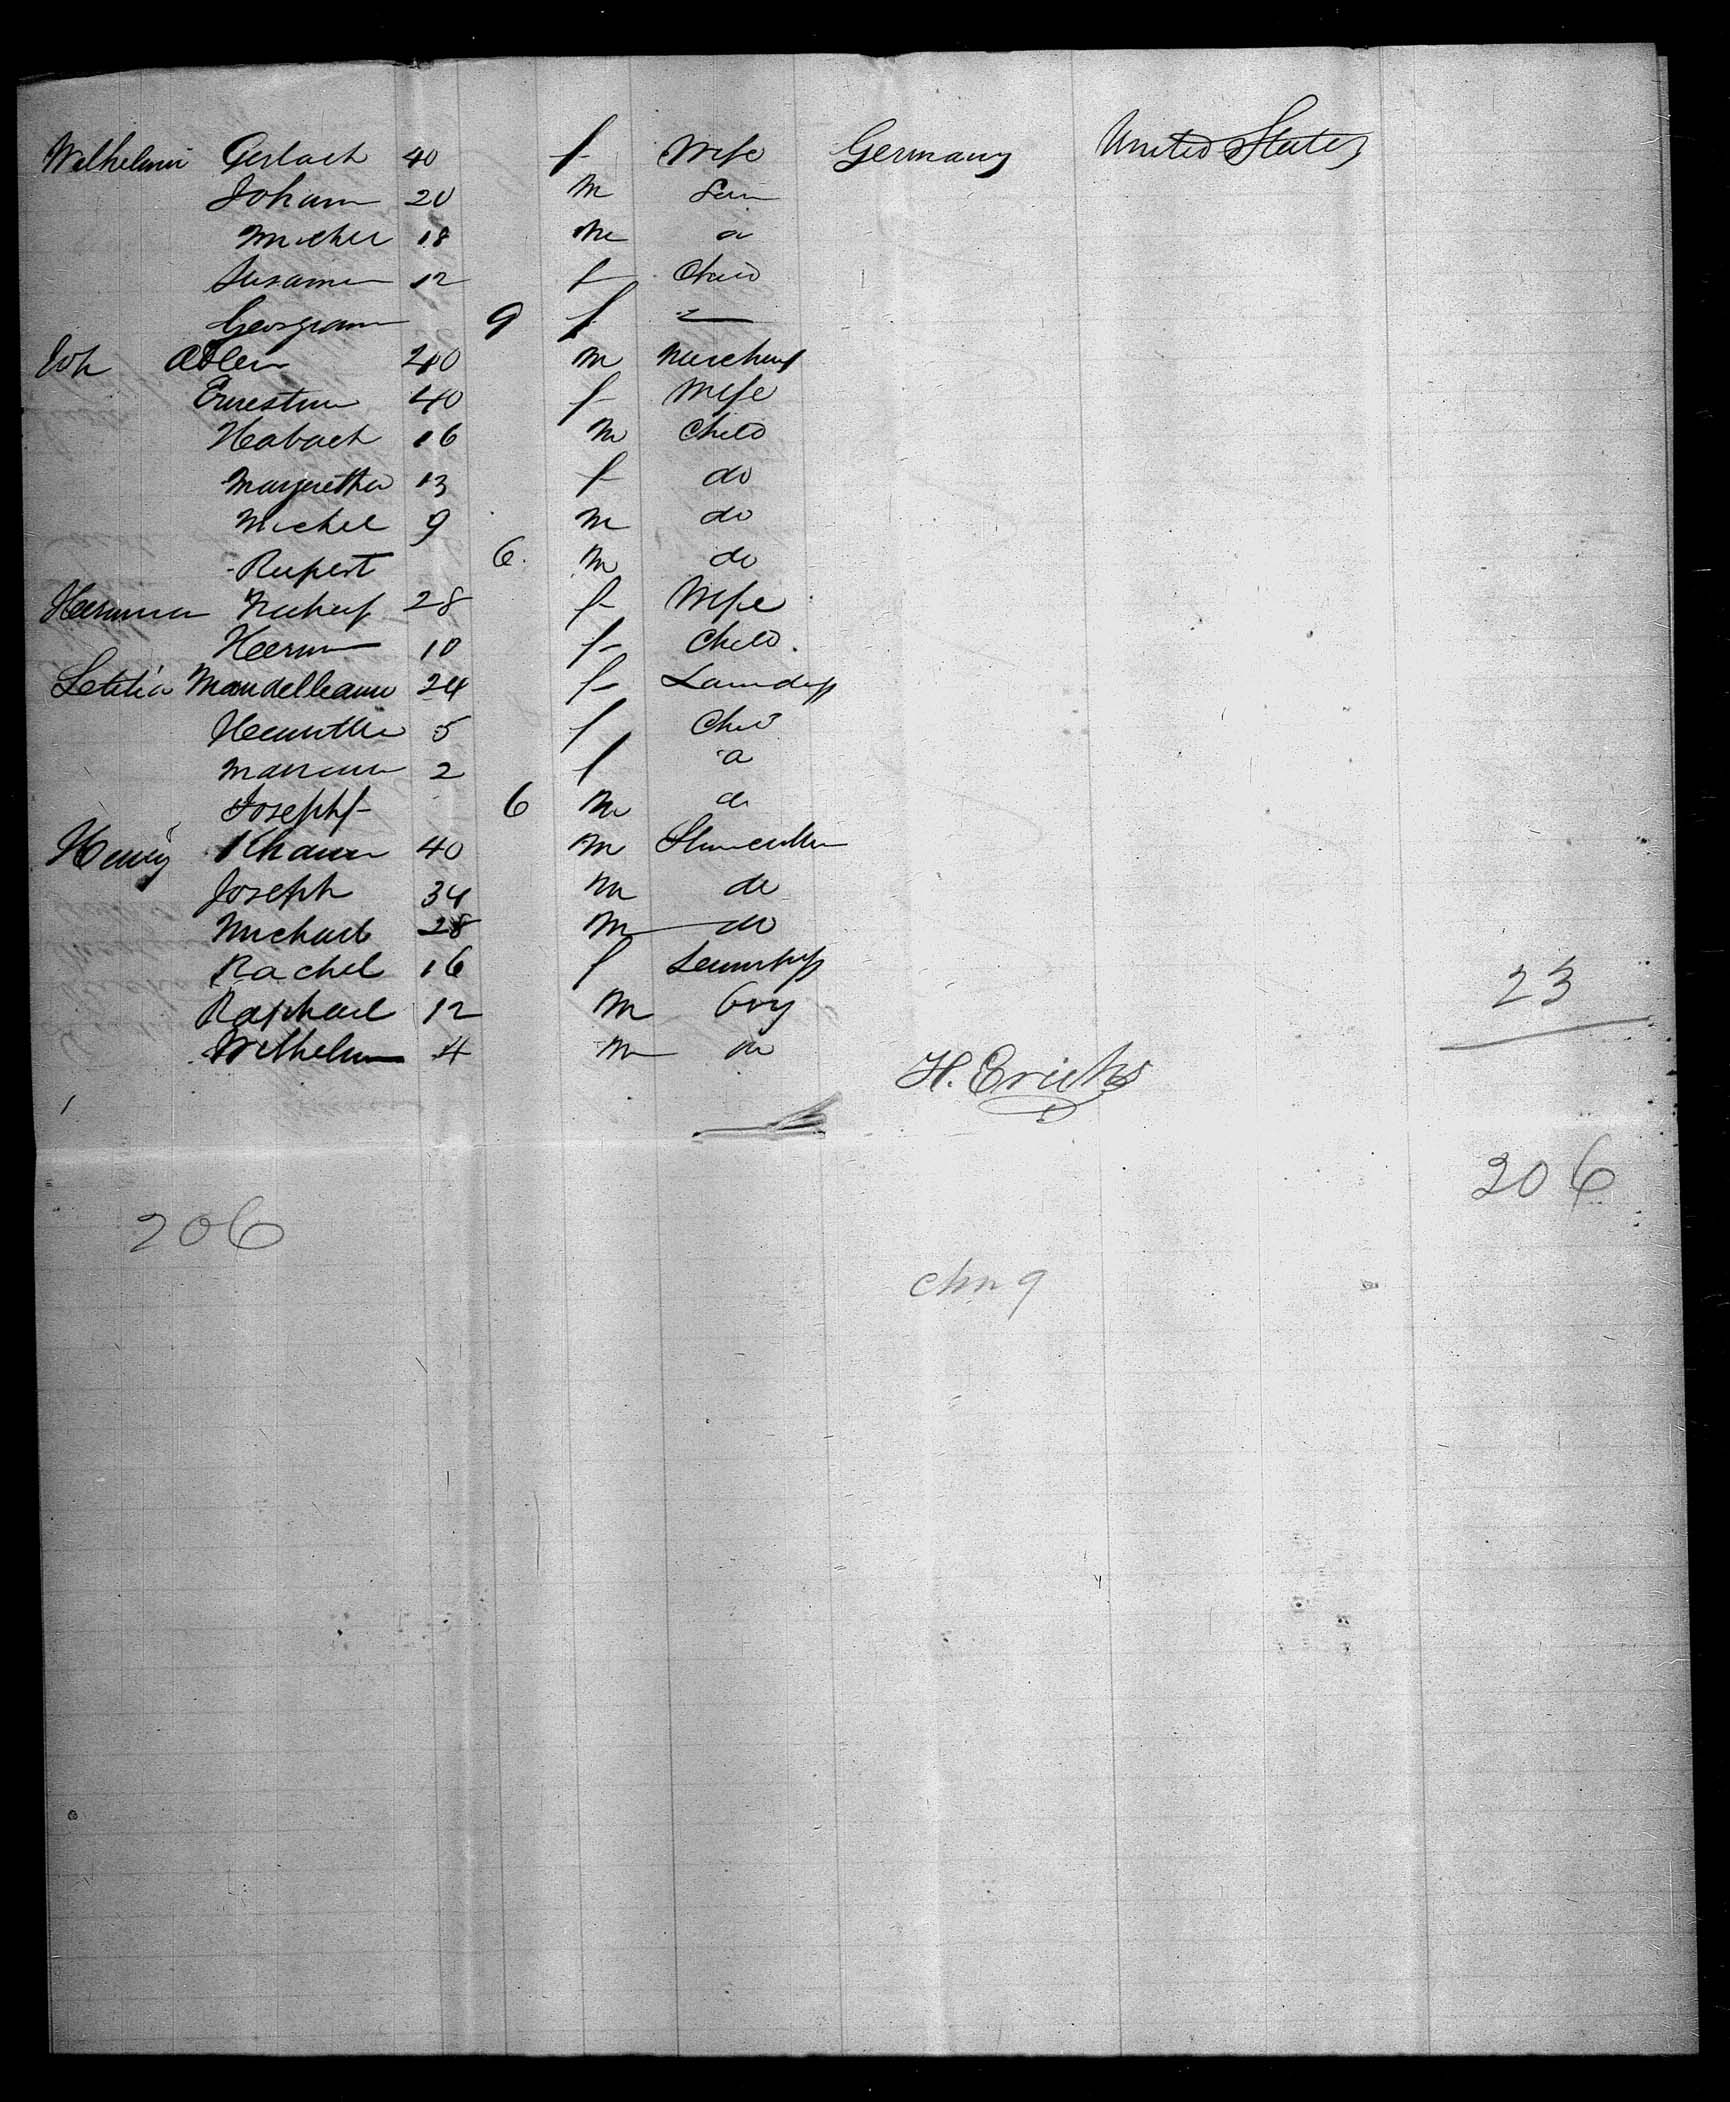 Wilhelmin Gerlach 40 f Wife Germany United States
Johann 20 m Son
Michel 18 m do
Susanna 12 f Child
Georgiann 9 f "
Joh Adler 40 m Merchant
Ernestine 40 f Wife
16 m Child
Margretha 13 f do
Michel 9 m do
Rupert 6 m do
28 f Wife
10 f Child
Letitia Mandelbaum 24 f
5 f Child
2 f do
Joseph 6 m do
Henry 40 m
Joseph 34 m do
Michael 28 m do
Rachel 16 f
Raphael 12 m boy
Wilhelm 4 m do
23
H. Erichs
206
206
chn 9